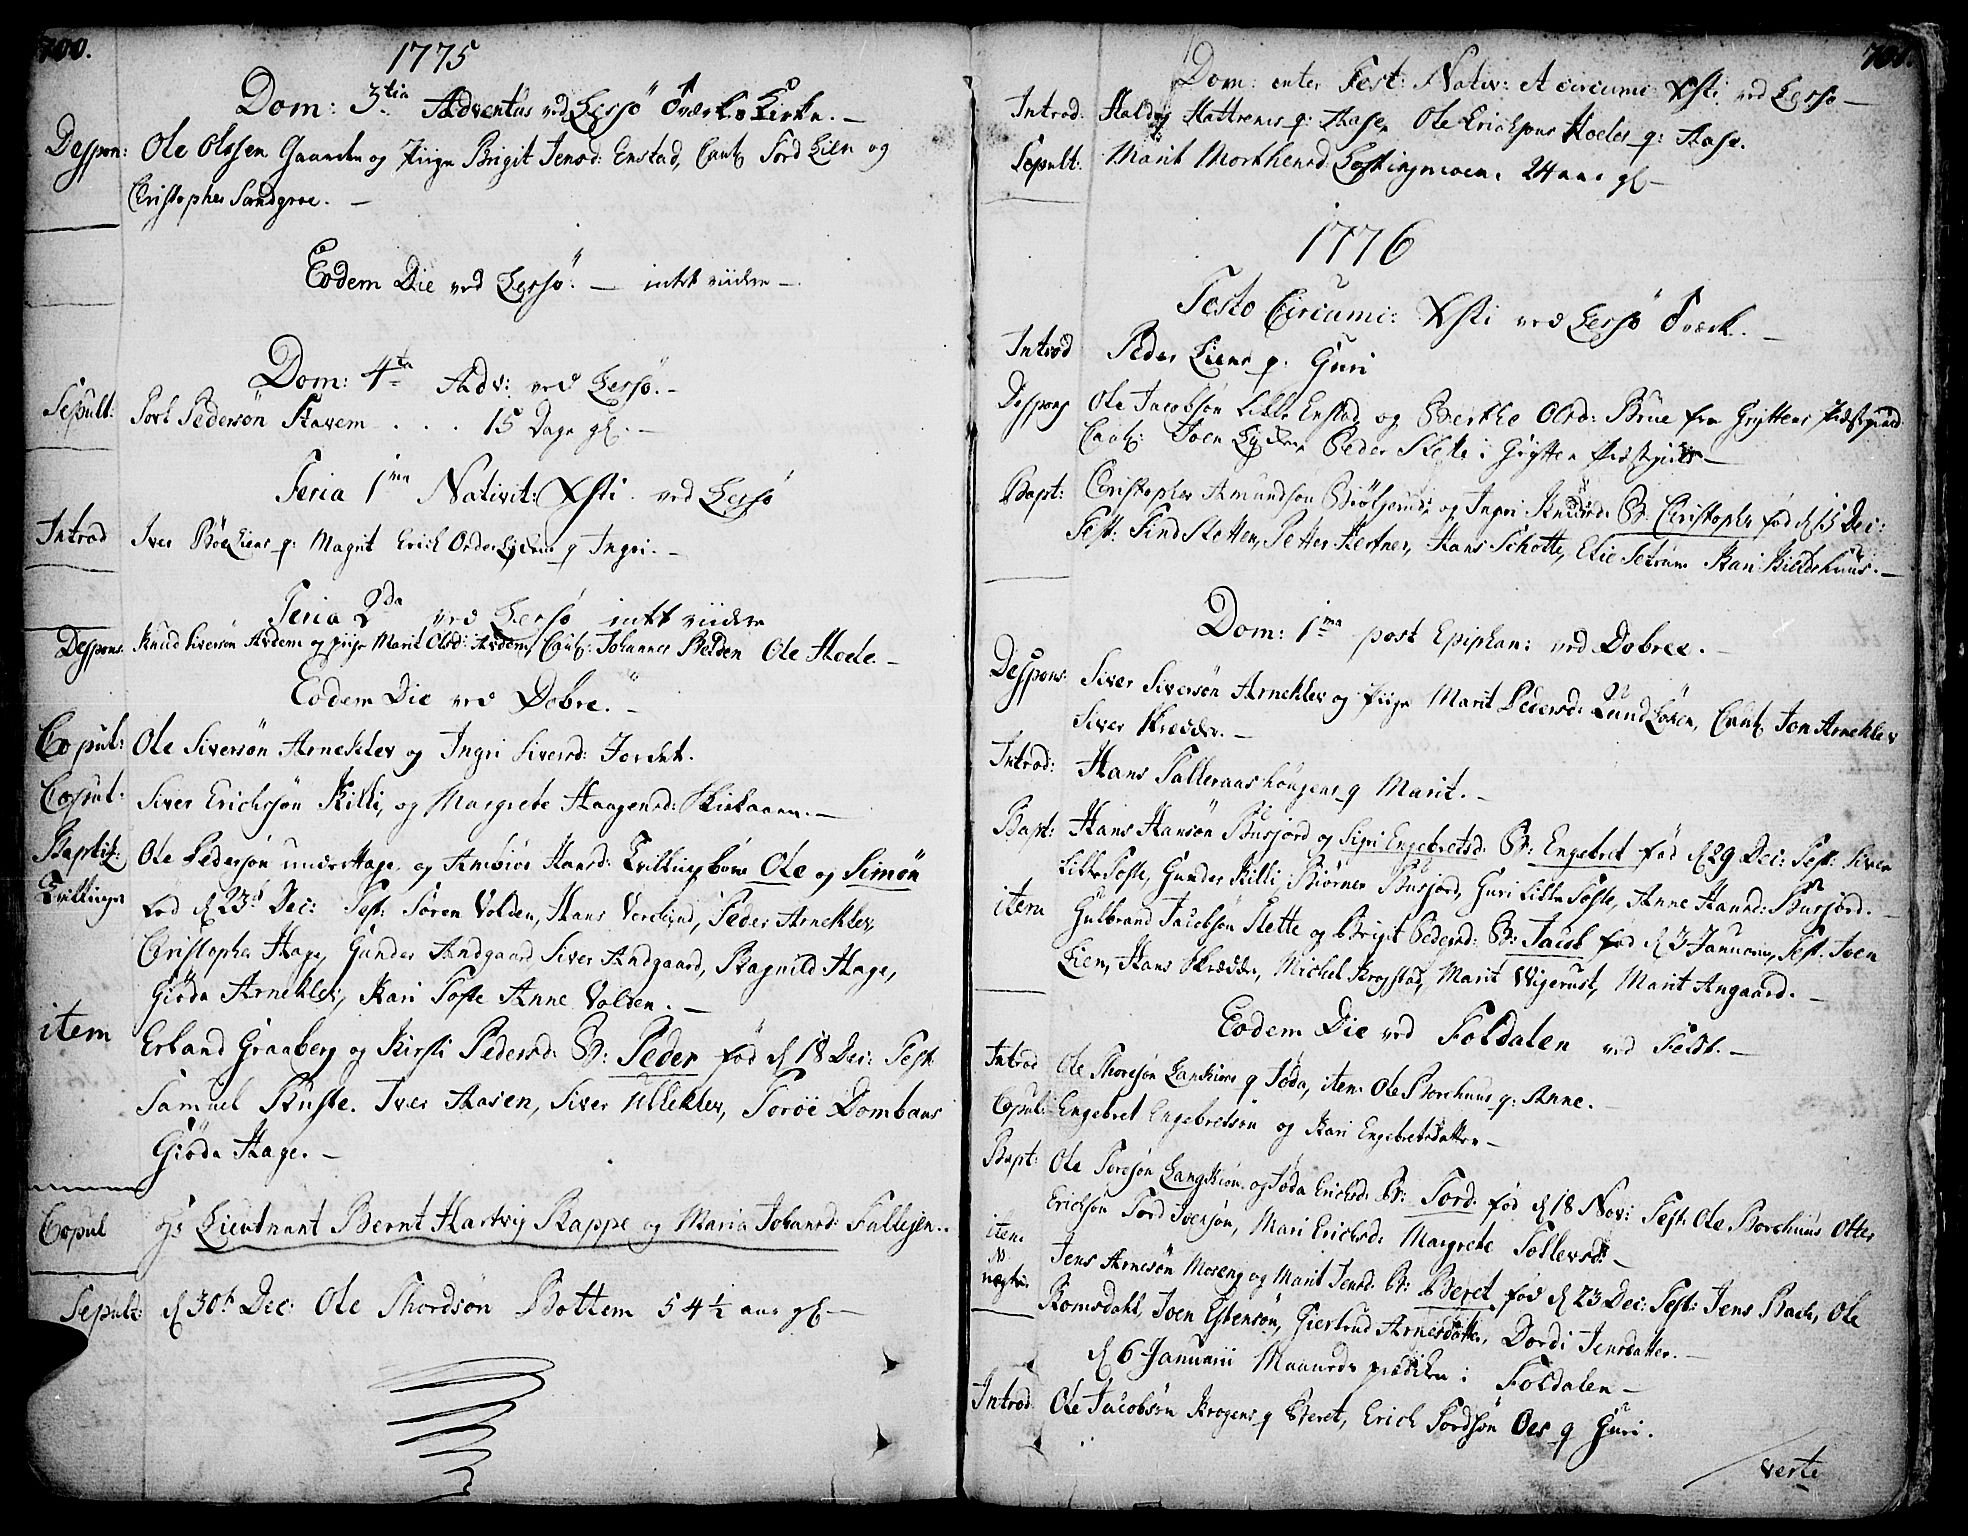 700.
1775
Dom: 3tia Adventus ved Lessö Værks Kirke. —
Despon: Ole Olssen Gaarden og Piige Brigit Jensd: Enstad, Caut: Tord Lien og
Christopher Sandgroe. —
Eodem Die ved Lessö. — intet viidere —
Dom: 4ta Adv: ved Lessö. —
Sepult: Povl Pedersön Stavem . . . 15 Dage gl. —
Feria 1ma Nativit: Xsti ved Lessö
Introd Iver Böe Liens q: Magnt Erich Lyders q Ingri. —
Feria 2da ved Lessö intet viidere
Despons Knud Siversön Avdem og piige Marit Olsd: Avdem, Caut: Johannes Ole Hole. —
Eodem Die ved Dobre. —
Copul: Ole Siversön Arneklev og Ingri Siversd: Jordet.
Copul: Siver Erichsön Killi, og Margrete Haagensd: Skielaaen. —
Baptiz: Ole Pedersön underHage og Ambiör Hansd: Tvillingbörn Ole og Simön
Tvillinger fød d 23d Dec: Test: Sören Volden, Hans Peder Arneklev,
Christopher Hage, Gunder Andgaard Siver Andgaard, Ragnild Hage,
Giöda Arneklev, Kari Tofte Anne Volden. —
item Erland Graaberg og Kirsti Pedersd: B: Peder fød d 18 Dec: Test:
Samuel Buste. Iver Aasen, Siver Ulleklev, Toröe Dombaas
Giöda Hage. —
Copul Hr Lieutnant Bernt Hartvig Rappe og Maria Johansd: Fallesen..
Sepult: d 30te Dec: Ole Thordsön Bottem 54 1/2 aar gl —
701.
Dom: enter Fest: Nativ: & circumc: Xsti ved Lessö —
Introd: Haldog Hattrems q: Aase, Ole Erichsöns Hoeles q: Aase.
Sepult: Marit Morthensd: 24 aar gl —
1776
Festo Circumc: Xsti ved Lessö Værk. —
Introd Peder Liens q: Guri
Despons Ole Jacobsön Lille Enstad og Berthe Olsd: Brue fra Gryttens Præstegield.
Caut: Joen Peder Slette i Grytten Præstgield —
Bapt: Christopher Amundsön og Ingri Knudsd: B: Christopher fød d 15 Dec:
Test: Find Sletten, Petter Hans Schotte, Elie Kari Kildehuus. —
Dom: 1ma post Epiphan: ved Dobree. —
Despons: Siver Siversön Arneklev og Piige Marit Pedersd: Caut: Jon Arneklev
Siver Skredder. —
Introd: Hans Talleraashougens q Marit. —
Bapt: Hans Hansön Busjord og Sigri Engebretsd: B: Engebret fød d 29 Dec: Test: Siver
Lille Tofte, Gunder Killi, Biörner Busjord, Guri Lille Tofte, Anne Hansd: Busjord. —
item Gulbrand Jacobsön Slette og Brigit Pedersd: B: Jacob fød d 3 Januarii, Test: Joen
Lien, Hans Skredder, Michel Krogstad, Marit Wigerust, Marit Angaard. —
Eodem Die ved Foldalen ved Feldt. —
Introd Ole Thoresön q Töda, item Ole Borchuus q: Anne.
Copul: Engebret Engebretsön og Kari Engebretsdatter —
Bapt: Ole Toresön og Töda Erichsd: B: Tord fød d 18 Nov: Test: Ole Borchuus Otter
Erichsön Tord Iversön, Mari Erichsd: Margrete Tollevsd: —
item Jens Arnesön Moseng og Marit Jensd: B: Beret fød d 23 Dec: Test: Jens Bach, Ole
Romsdahl, Joen Estensön, Giertrud Arnesdatter, Dordi Jensdatter. —
d 6 Januarii i Foldalen —
Introd: Ole Jacobsön Krogens q Beret, Erich Tordsön Oes q Guri.
verte